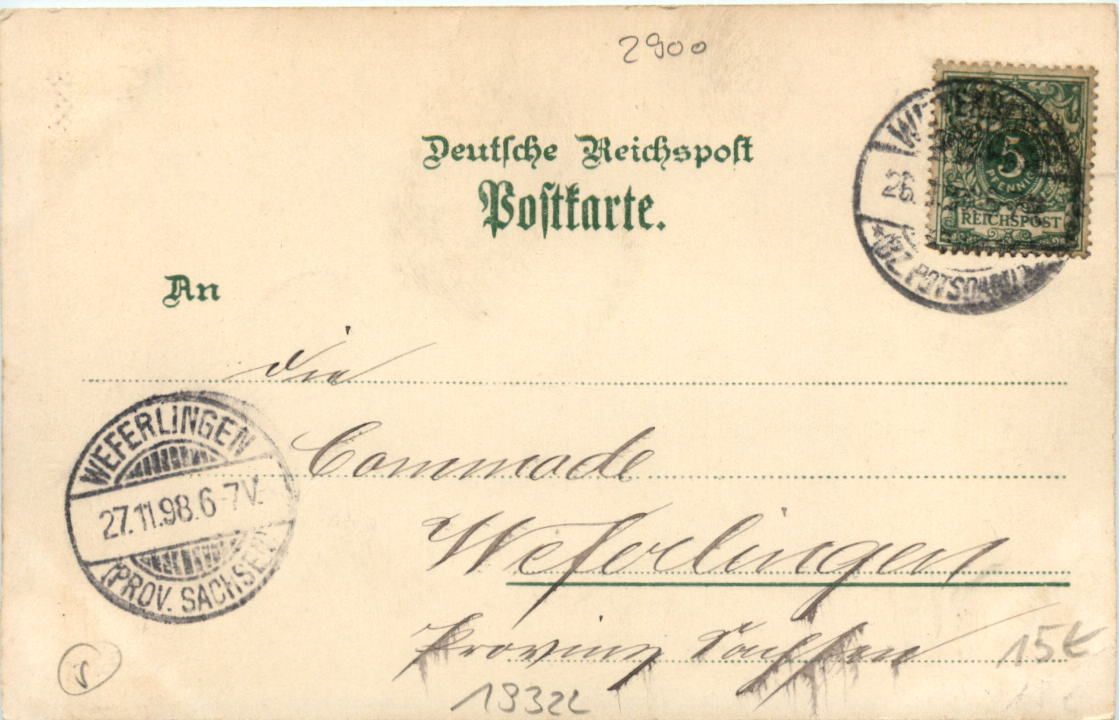 2900
Deutsche Reichspost
Postkarte.
5
PFENNIG
REICHSPOST
An
die
Commade
WEFERLINGEN
27.11.98.6-7V.
(PROV. SACHSEN)
Weferlingen
Provinz Sachsen
15€
1932L